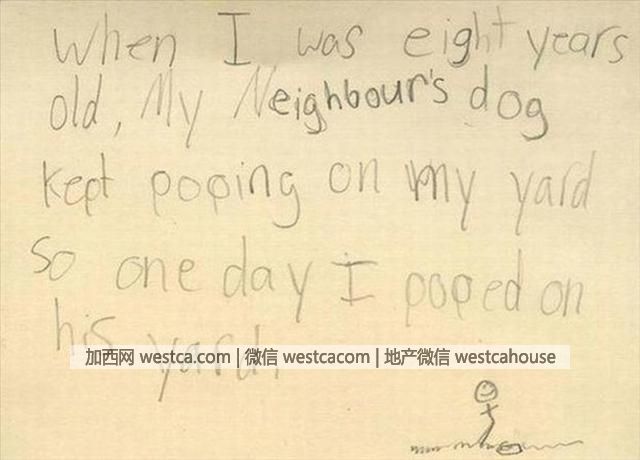 when I was eight years
old, My Neighbour's dog
kept poping on my yard
so one day I pooped on
his yard.
加西网 westca.com | 微信 westcacom | 地产微信 westcahouse